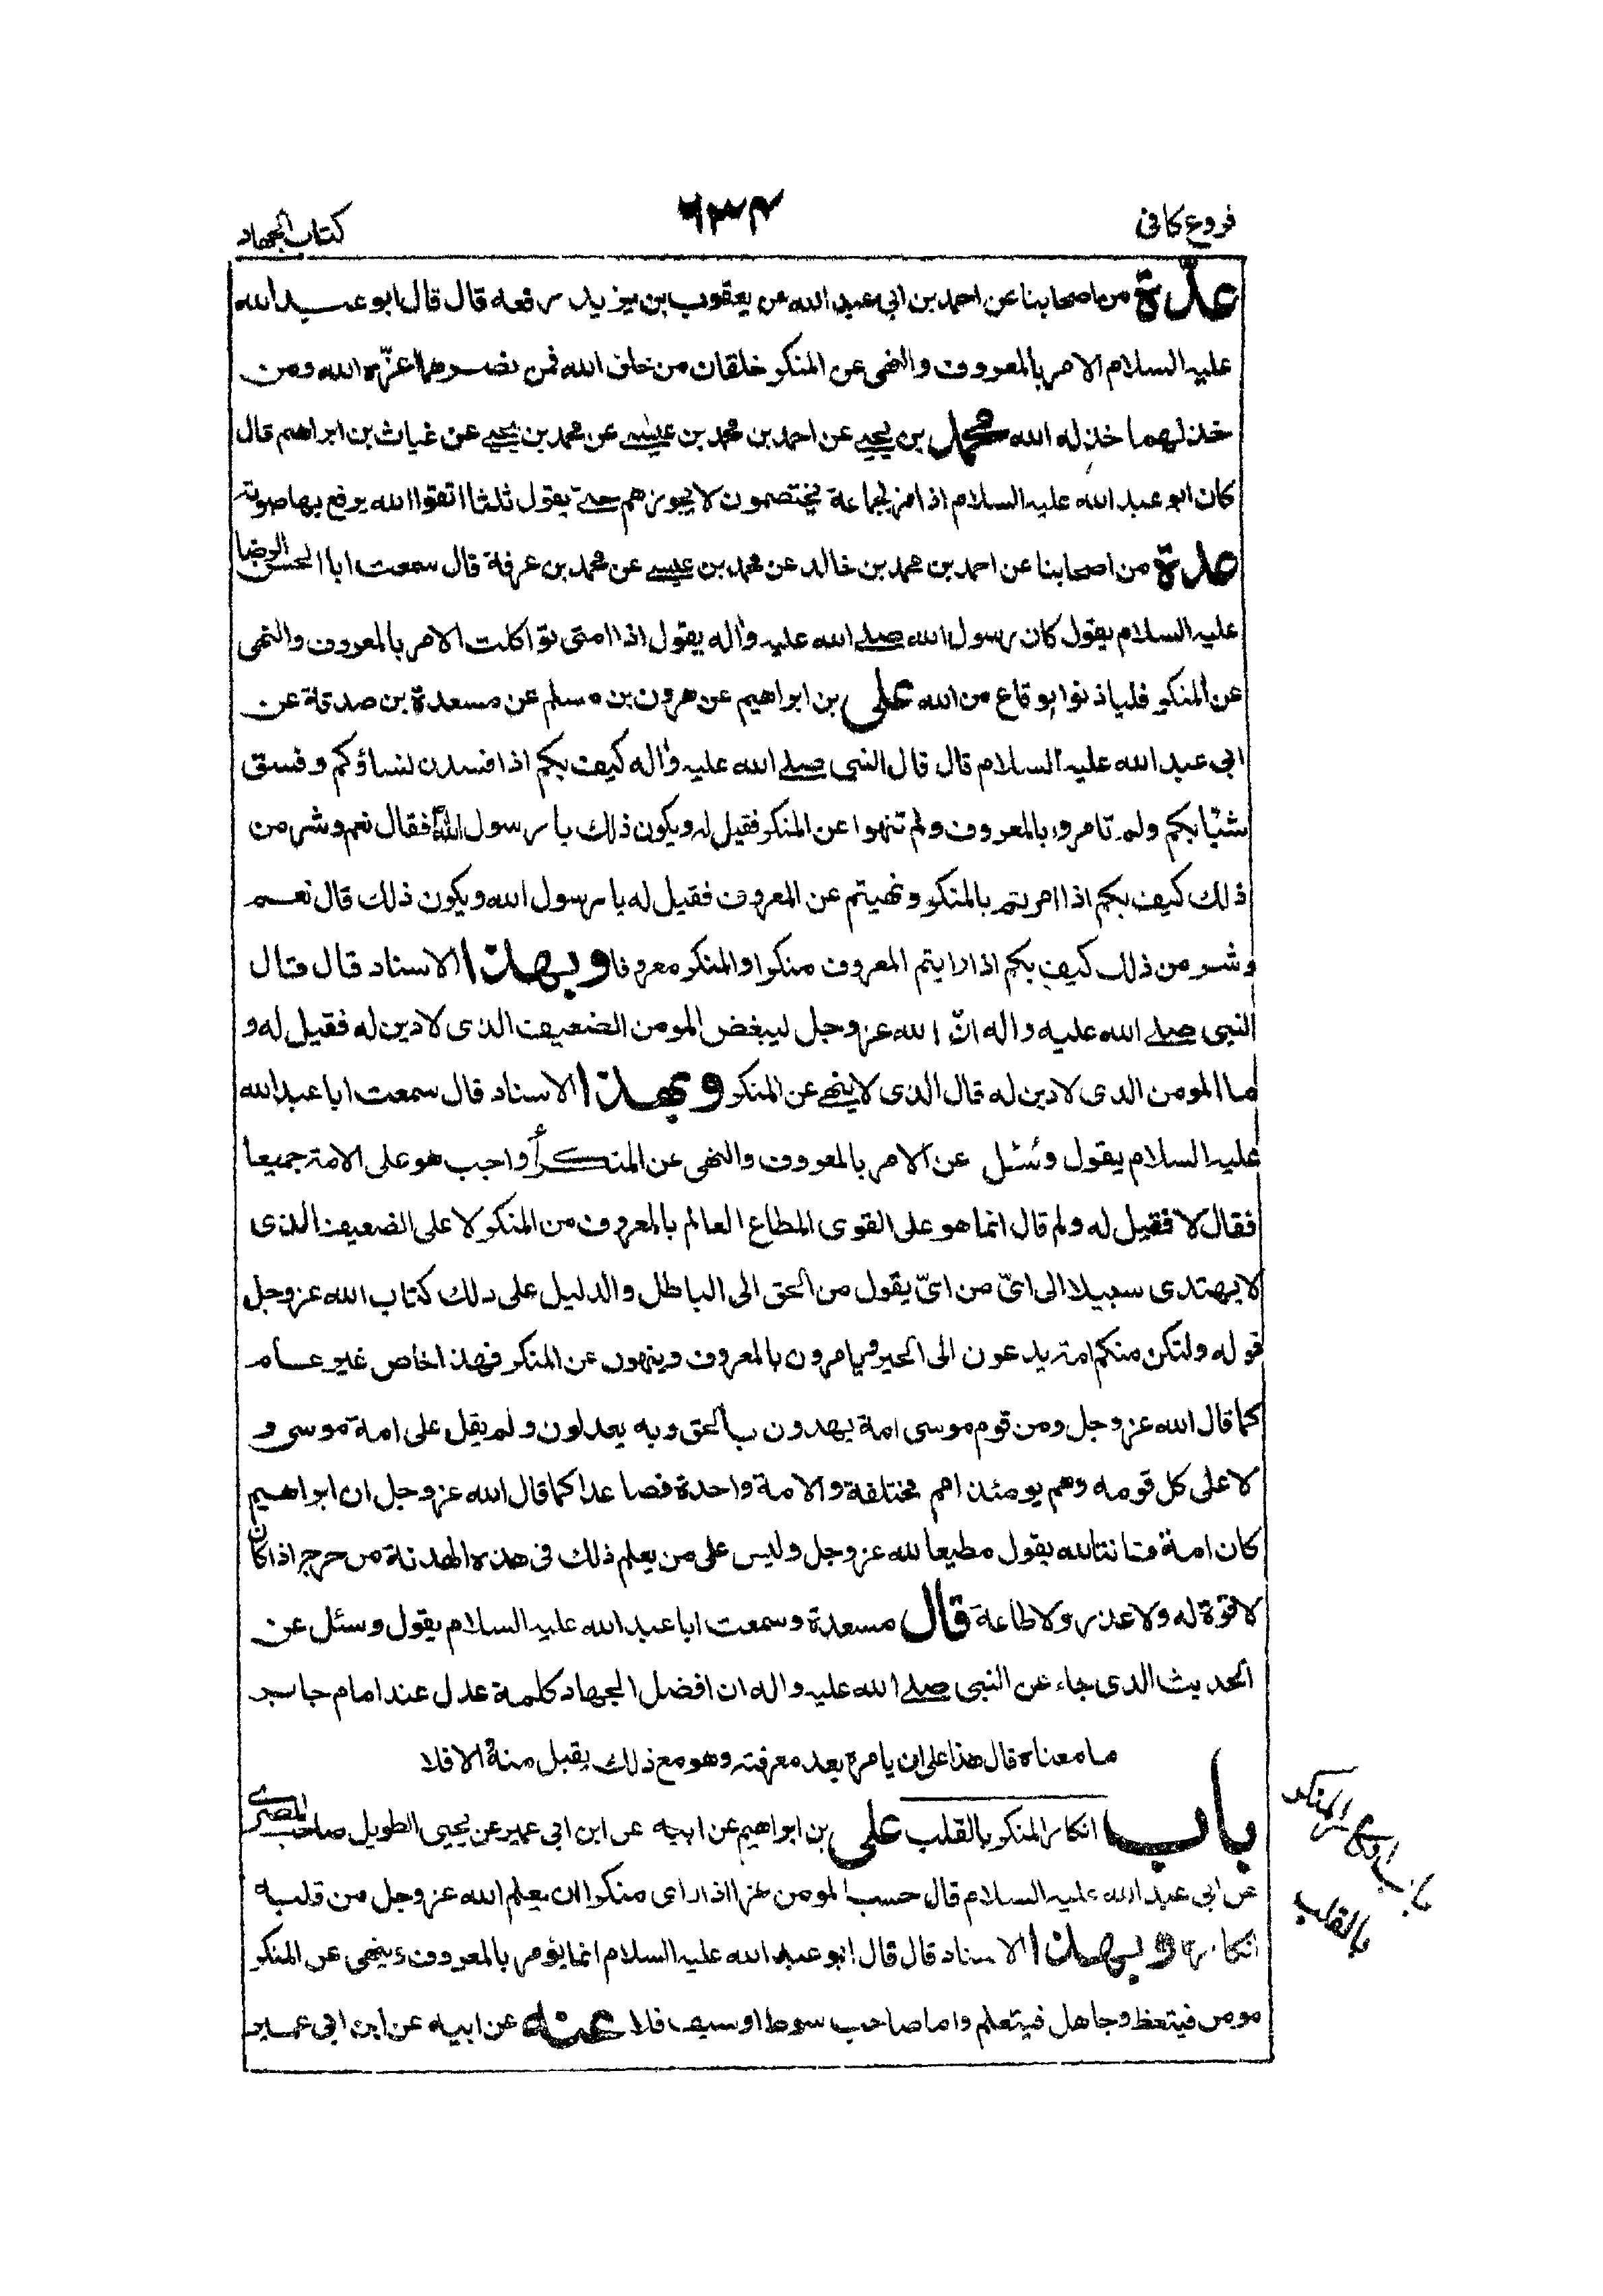 فروع كافى
٦٣٤
كتاب الجهاد
عدّة من اصحابنا عن احمد بن ابى عبد الله عن يعقوب بن يزيد رفعه قال قال ابو عبد الله
عليه السلام الامر بالمعروف والنهى عن المنكر خلقان من خلق الله فمن نصرهما اعزّه الله ومن
خذلهما خذله الله محمد بن يحيى عن احمد بن محمد بن عيسى عن محمد بن يحيى عن غياث بن ابراهيم قال
كان ابو عبد الله عليه السلام اذا مر بجماعة يختصمون لا يجوزهم حتى يقول ثلثا اتقوا الله يرفع بها صوته
عدة من اصحابنا عن احمد بن محمد بن خالد عن محمد بن عيسى عن محمد بن عرفة قال سمعت ابا الحسن الرضا
عليه السلام يقول كان رسول الله صلى الله عليه واله يقول اذا امتى تواكلت الامر بالمعروف والنهى
عن المنكر فلياذنوا بوقاع من الله على بن ابراهيم عن هرون بن مسلم عن مسعدة بن صدقة عن
ابى عبد الله عليه السلام قال قال النبى صلى الله عليه واله كيف بكم اذا فسدن نساؤكم وفسق
شبّابكم ولم تامروا بالمعروف ولم تنهوا عن المنكر فقيل له ويكون ذلك يا رسول الله فقال نعم وشر من
ذلك كيف بكم اذا امرتم بالمنكر ونهيتم عن المعروف فقيل له يا رسول الله ويكون ذلك قال نعم
وشر من ذلك كيف بكم اذا رايتم المعروف منكرا والمنكر معروفا وبهذا الاسناد قال قال
النبى صلى الله عليه واله انّ الله عز وجل ليبغض المومن الضعيف الذى لا دين له فقيل له و
ما المومن الذى لا دين له قال الذى لا ينهى عن المنكر وبهذا الاسناد قال سمعت ابا عبد الله
عليه السلام يقول وسُئل عن الامر بالمعروف والنهى عن المنكر أواجب هو على الامة جميعا
فقال لا فقيل له ولم قال انما هو على القوى المطاع العالم بالمعروف من المنكر لا على الضعيف الذى
لا يهتدى سبيلا الى اىّ من اىّ يقول من الحق الى الباطل والدليل على ذلك كتاب الله عز وجل
قوله ولتكن منكم امة يدعون الى الخير ويامرون بالمعروف وينهون عن المنكر فهذا خاص غير عام
كما قال الله عز وجل ومن قوم موسى امة يهدون بالحق وبه يعدلون ولم يقل على امة موسى و
لا على كل قومه وهم يومئذ امم مختلفة والامة واحدة فصاعدا كما قال الله عز وجل ان ابراهيم
كان امة قانتا لله يقول مطيعا لله عز وجل وليس على من يعلم ذلك فى هذه الهدنة من حرج اذا كان
لا قوة له ولا عذر ولا طاعة قال مسعدة وسمعت ابا عبد الله عليه السلام يقول وسئل عن
الحديث الذى جاء عن النبى صلى الله عليه واله ان افضل الجهاد كلمة عدل عند امام جاير
ما معناه قال هذا على ان يامره بعد معرفته وهو مع ذلك يقبل منه والا فلا
باب انكار المنكر بالقلب على بن ابراهيم عن ابيه عن ابن ابى عمير عن يحيى الطويل صاحب المصرى
عن ابى عبد الله عليه السلام قال حسب المومن عزا اذا راى منكرا ان يعلم الله عز وجل من قلبه
انكاره وبهذا الاسناد قال قال ابو عبد الله عليه السلام انما يؤمر بالمعروف وينهى عن المنكر
مومن فيتعظ وجاهل فيتعلم واما صاحب سوط او سيف فلا عنه عن ابيه عن ابن ابى عمير
باب انكار المنكر
بالقلب